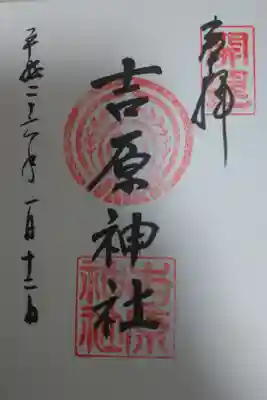 奉拝
開運
吉原神社
吉原
神社
平成二十六年一月十二日